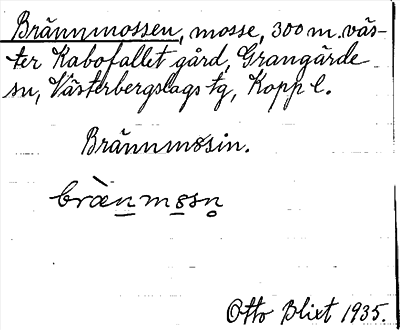 Brännmossen, mosse, 300 m. väs-
ter Kabofallet gård, Grangärde
sn, Västerbergslags tg, Kopp l.
Brännmosin.
bràn̲mo̲sn̥
Otto Blixt 1935.